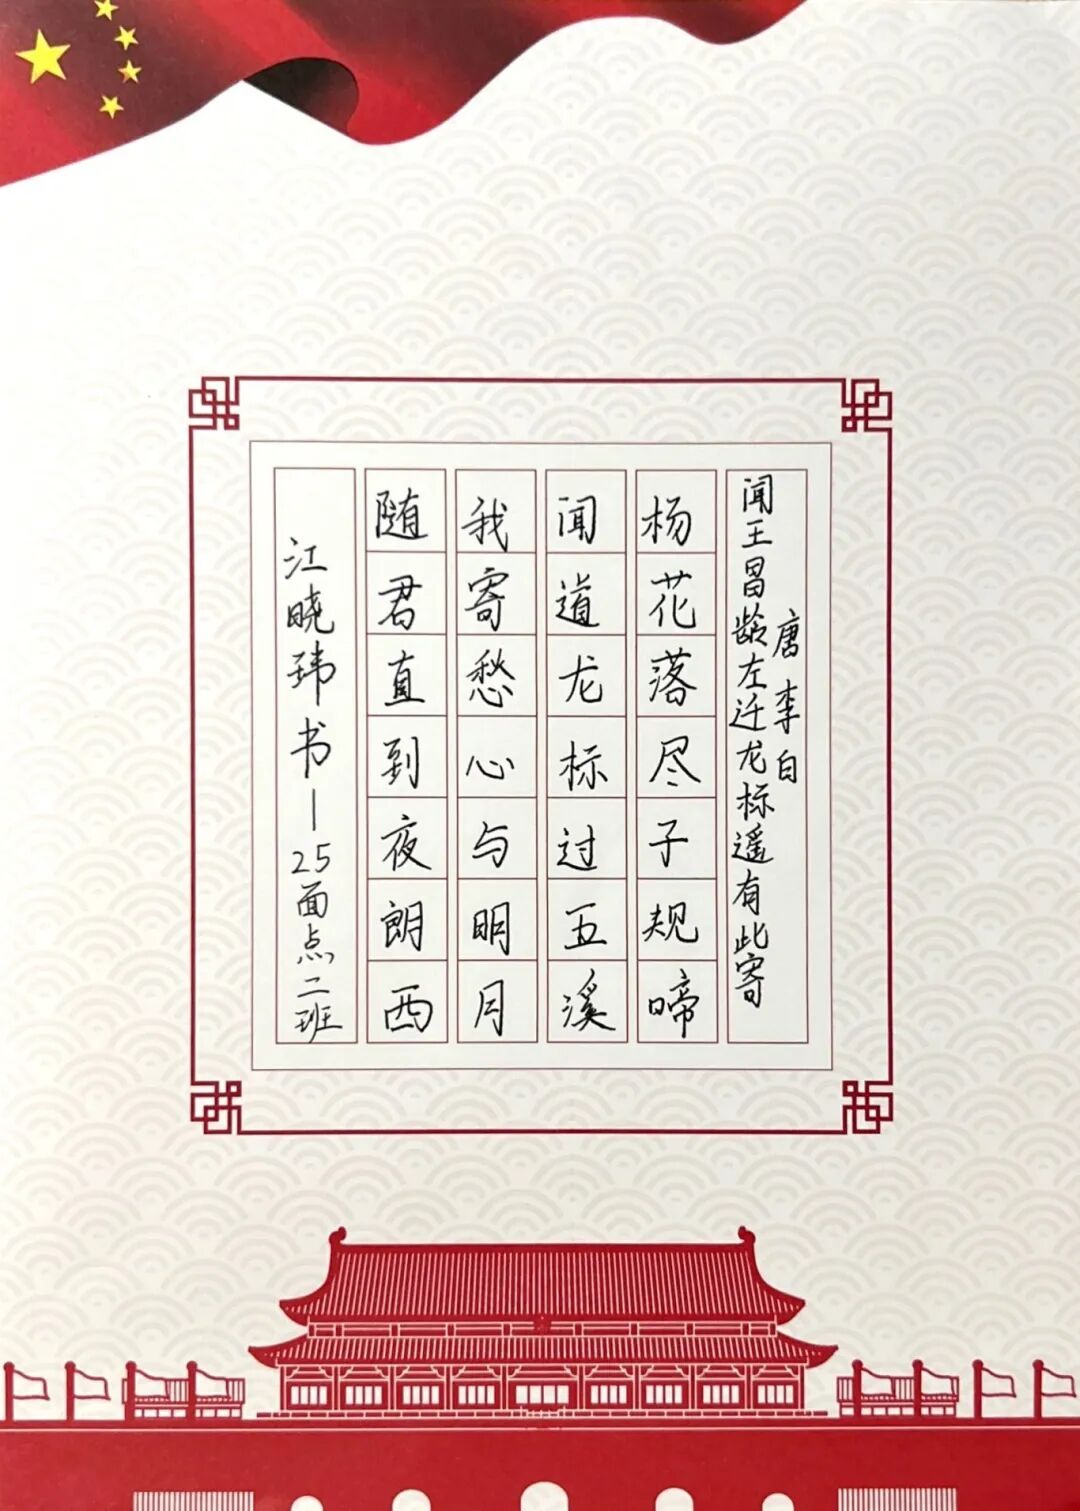 闻王昌龄左迁龙标遥有此寄
唐李白
杨花落尽子规啼
闻道龙标过五溪
我寄愁心与明月
随君直到夜朗西
江晓玮书—25面点二班